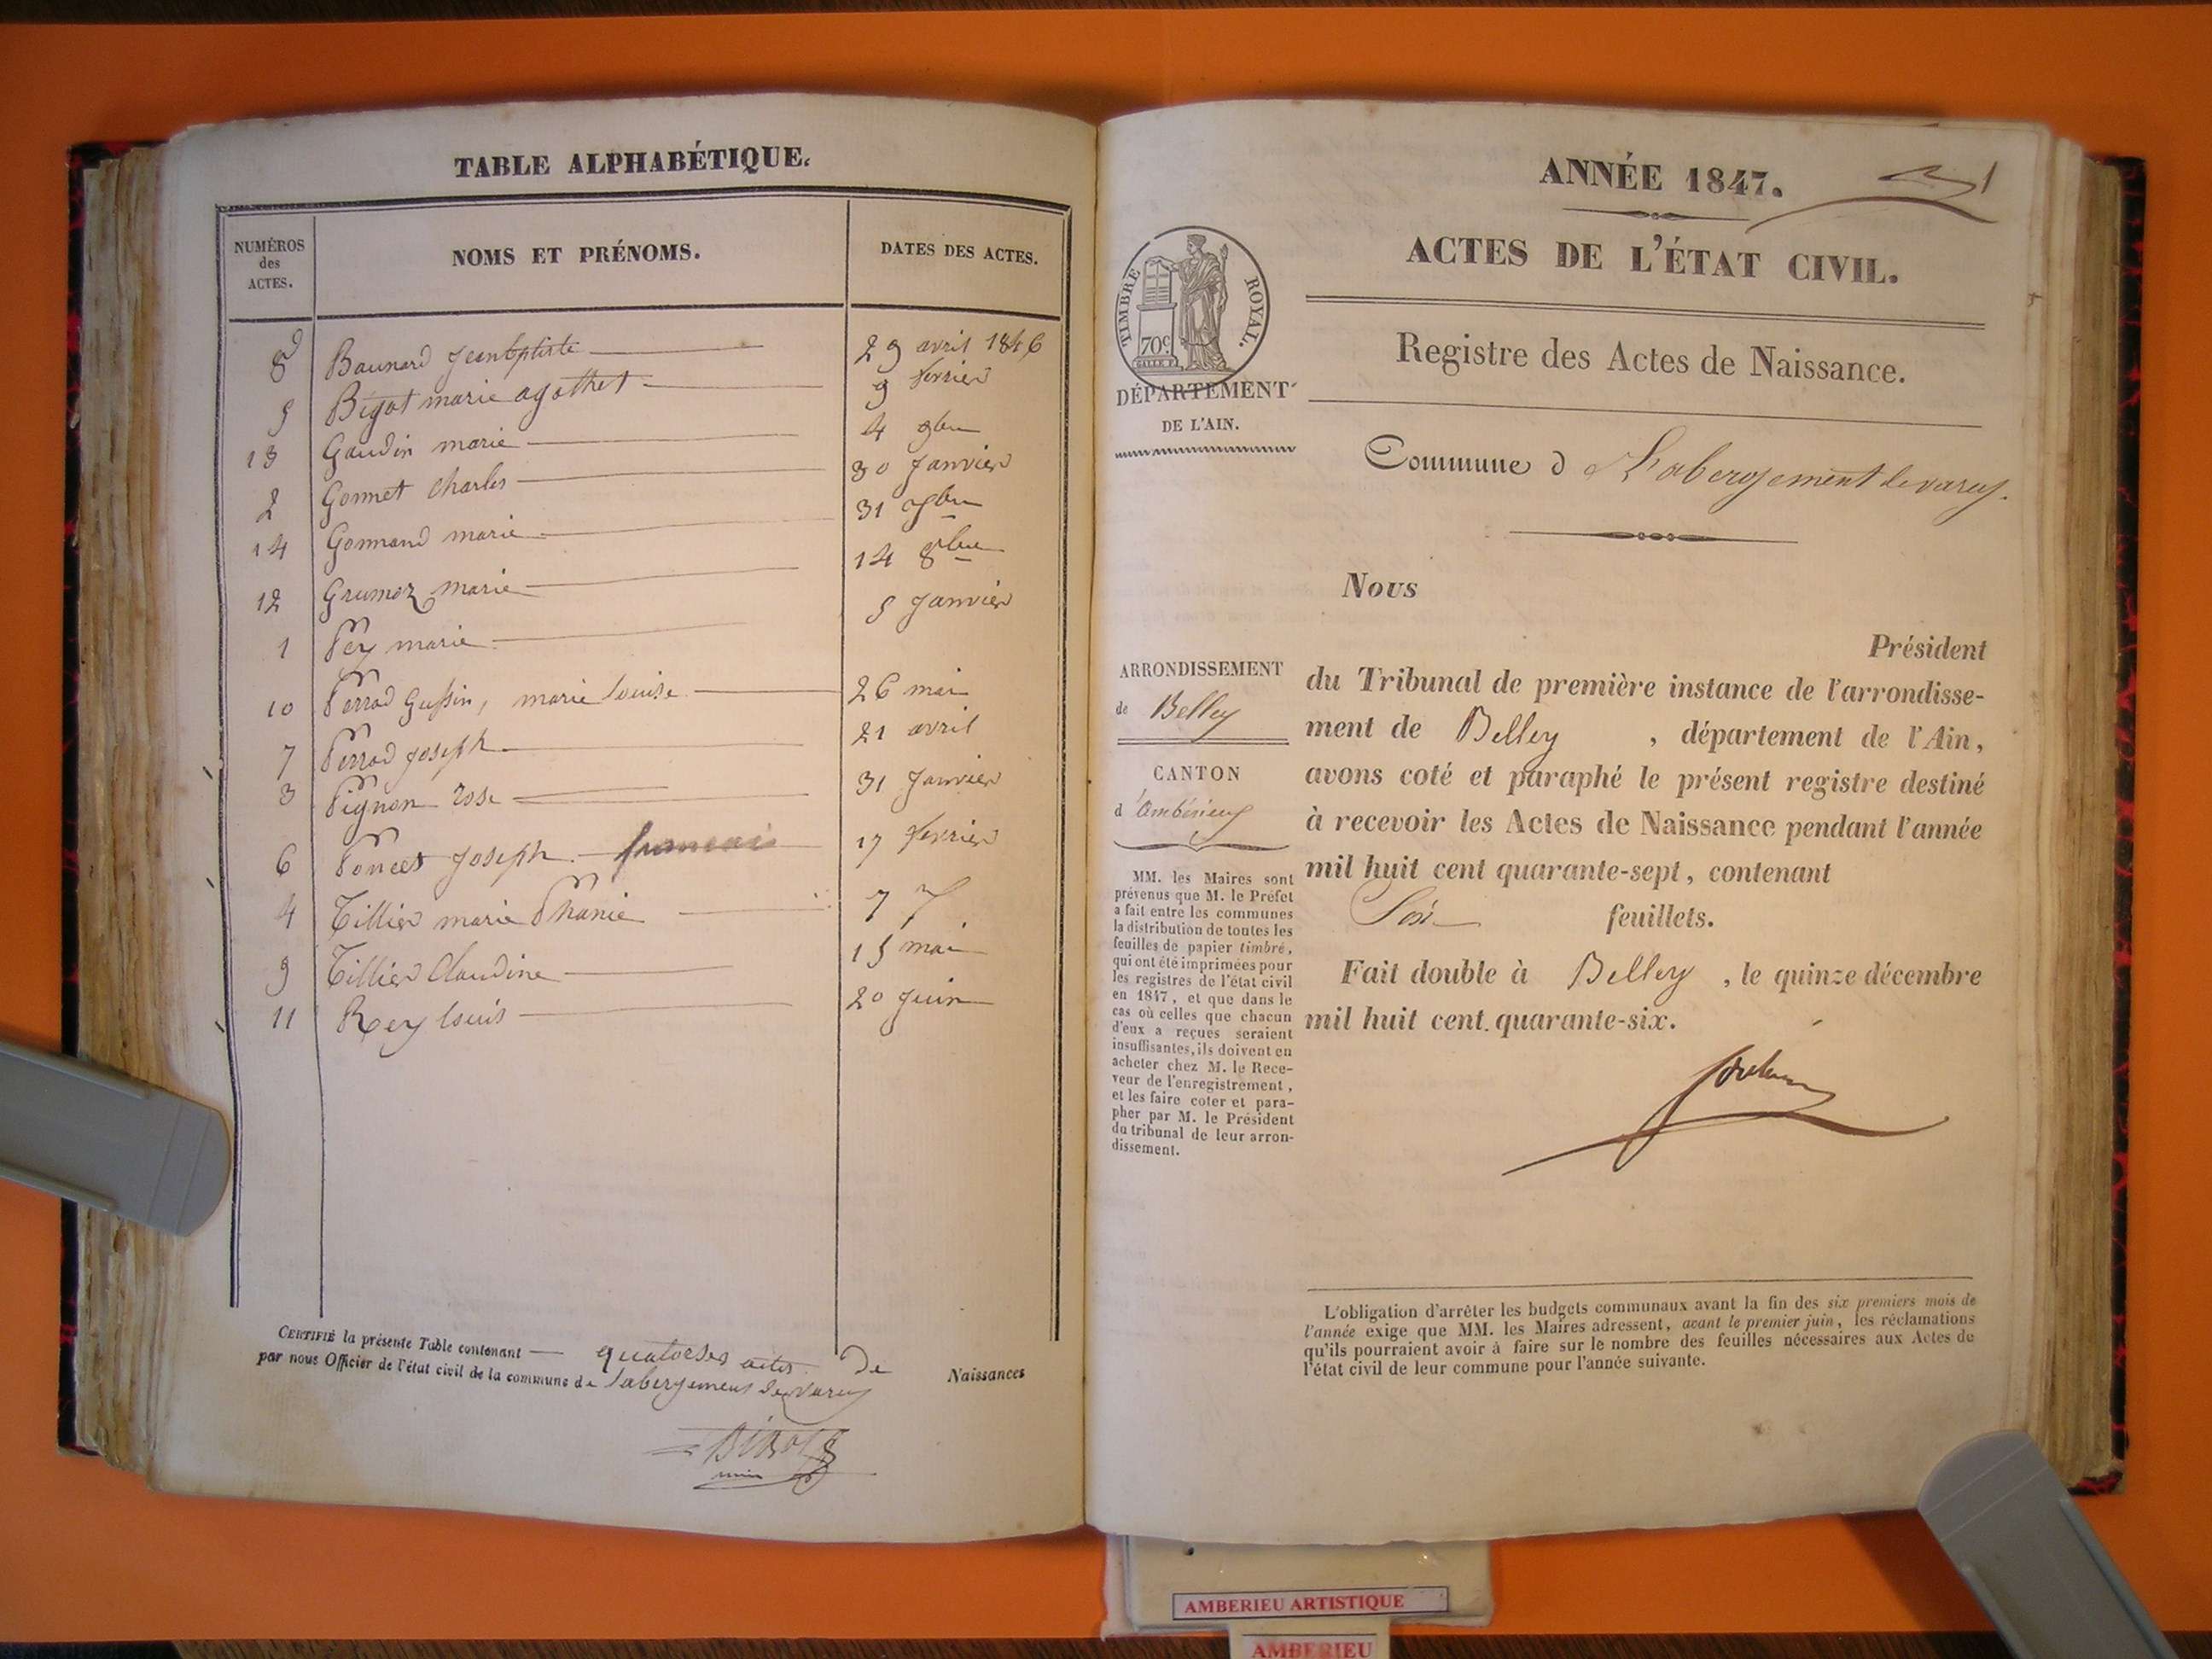 TABLE ALPHABÉTIQUE.
NUMÉROS
des
ACTES.
NOMS ET PRÉNOMS.
DATES DES ACTES.
8 Baunard Jean bptiste 29 avril 1846
5 Bigot marie agothe 9 fevrier
13 Gaudin marie 4 9bre
2 Gonnet Charles 30 Janvier
14 Gonnand marie 31
12 Grumoz marie 14 8bre
1 Pey marie 5 Janvier
10 Perrod marie louise 26 mai
7 Perrod Joseph 21 avril
3 Pignon rose 31 Janvier
6 Poncet Joseph francois 17 fevrier
4 Tillier marie 7
9 Tillier Claudine 15 mai
11 Rey louis 20 Juin
CERTIFIÉ la présente Table contenant quatorses actes de Naissances
par nous Officier de l'état civil de la commune de Labergement de varey
ANNÉE 1847.
ACTES DE L'ÉTAT CIVIL.
TIMBRE ROYAL.
70c
DÉPARTEMENT
DE L'AIN.
Registre des Actes de Naissance.
Commune d Labergement de varey.
Nous
Président
du Tribunal de première instance de l'arrondisse-
ment de Belley , département de l'Ain,
avons coté et paraphé le présent registre destiné
à recevoir les Actes de Naissance pendant l'année
mil huit cent quarante-sept, contenant
Six feuillets.
Fait double à Belley , le quinze décembre
mil huit cent quarante-six.
ARRONDISSEMENT
de Belley
CANTON
d'Ambérieu
MM. les Maires sont
prévenus que M. le Préfet
a fait entre les communes
la distribution de toutes les
feuilles de papier timbré,
qui ont été imprimées pour
les registres de l'état civil
en 1847, et que dans le
cas où celles que chacun
d'eux a reçues seraient
insuffisantes, ils doivent en
acheter chez M. le Rece-
veur de l'enregistrement,
et les faire coter et para-
pher par M. le Président
du tribunal de leur arron-
dissement.
L'obligation d'arrêter les budgets communaux avant la fin des six premiers mois de
l'année exige que MM. les Maires adressent, avant le premier juin, les réclamations
qu'ils pourraient avoir à faire sur le nombre des feuilles nécessaires aux Actes de
l'état civil de leur commune pour l'année suivante.
AMBERIEU ARTISTIQUE
AMBERIEU